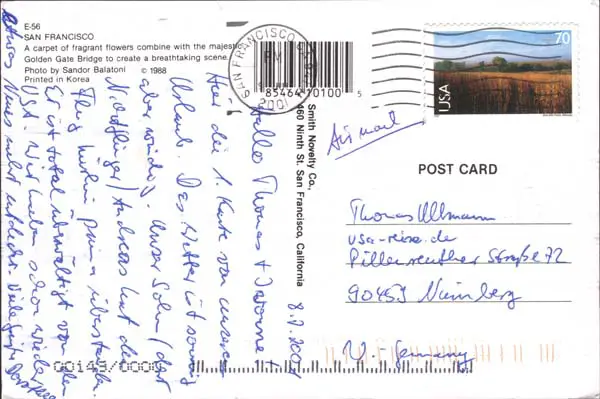 E-56
SAN FRANCISCO
A carpet of fragrant flowers combine with the majestic
Golden Gate Bridge to create a breathtaking scene.
Photo by Sandor Balatoni © 1988
Printed in Korea
SAN FRANCISCO CA
PM
2001
85464 10100 5
Smith Novelty Co.,
460 Ninth St. San Francisco, California
70
USA
Air mail
POST CARD
Thomas Ullmann
usa-reise.de
Pillenreuther Straße 72
90459 Nürnberg
Germany
8.7.2001
Hallo Thomas + Ivonne!
Hier die 1. Karte von unserem
Urlaub. Das Wetter ist sonnig
aber windig. Unser Sohn (dort
Andreas hat den
Flug hierhin prima überstanden.
Er ist total überwältigt von den
USA. Wir haben schon wieder
etwas Neues entdeckt. Viele Grüße